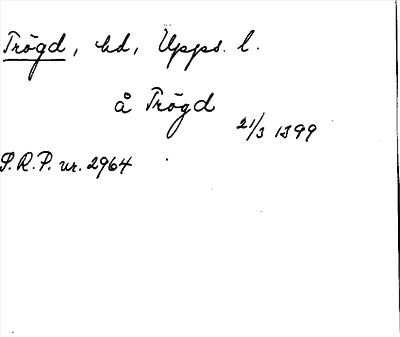 Trögd, hd, Upps. l.
å Trögd
21/3 1399
S.R.P. nr. 2964